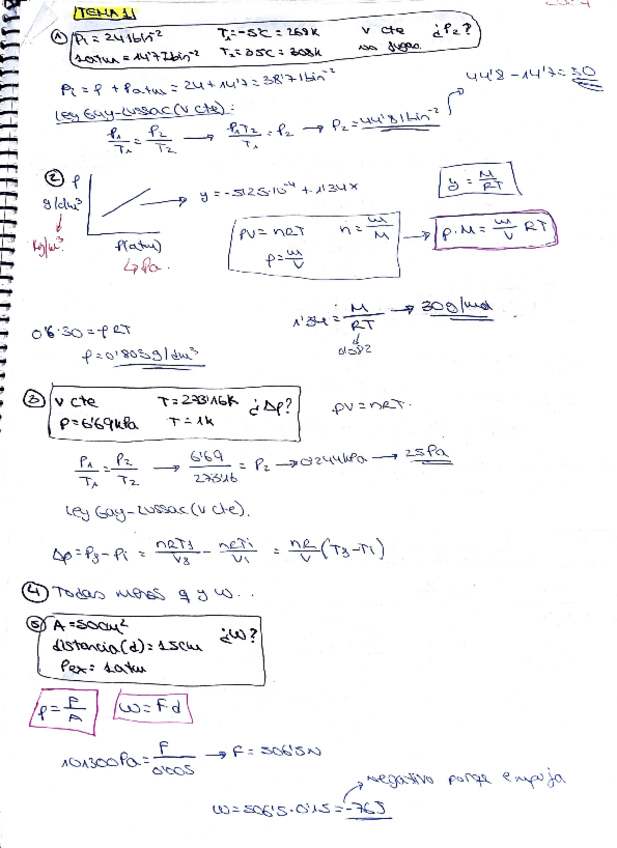 TEMA 1
① Pi = 24 lb in⁻² T₁ = -5C = 268K V cte ¿P₂?
1 atm = 14'7 lb in⁻² T₂ = 35C = 308K no fugas.
Pi = P + Patm = 24 + 14'7 = 38'7 lb in⁻²
44'8 - 14'7 = 30
Ley Gay-Lussac (V cte):
P₁/T₁ = P₂/T₂ → P₁T₂/T₁ = P₂ → P₂ = 44'8 lb in⁻²
② ρ
g/dm³
Kg/m³
P(atm)
↳ Pa.
y = -5'125·10⁻⁴ + 1'34x
y = M/RT
PV = nRT n = m/M
ρ = m/V
→ P·M = m/V RT
1'34 = M/RT → 30 g/mol
0'082
0'6·30 = ρRT
ρ = 0'803 g/dm³
③ V cte T = 273'16K ¿Δp?
P = 6'69 kPa T = 1K
PV = nRT.
P₁/T₁ = P₂/T₂ → 6'69/273'16 = P₂ → 0'0244 kPa → 25 Pa
Ley Gay-Lussac (V cte).
Δp = Pf - Pi = nRTf/Vf - nRTi/Vi = nR/V (Tf - Ti)
④ Todas menos q y w..
⑤ A = 50cm² ¿W?
distancia (d) = 15cm
Pex = 1 atm
P = F/A W = F·d
101300 Pa = F/0'005 → F = 506'5 N
negativo porque empuja
W = 506'5 · 0'15 = -76 J